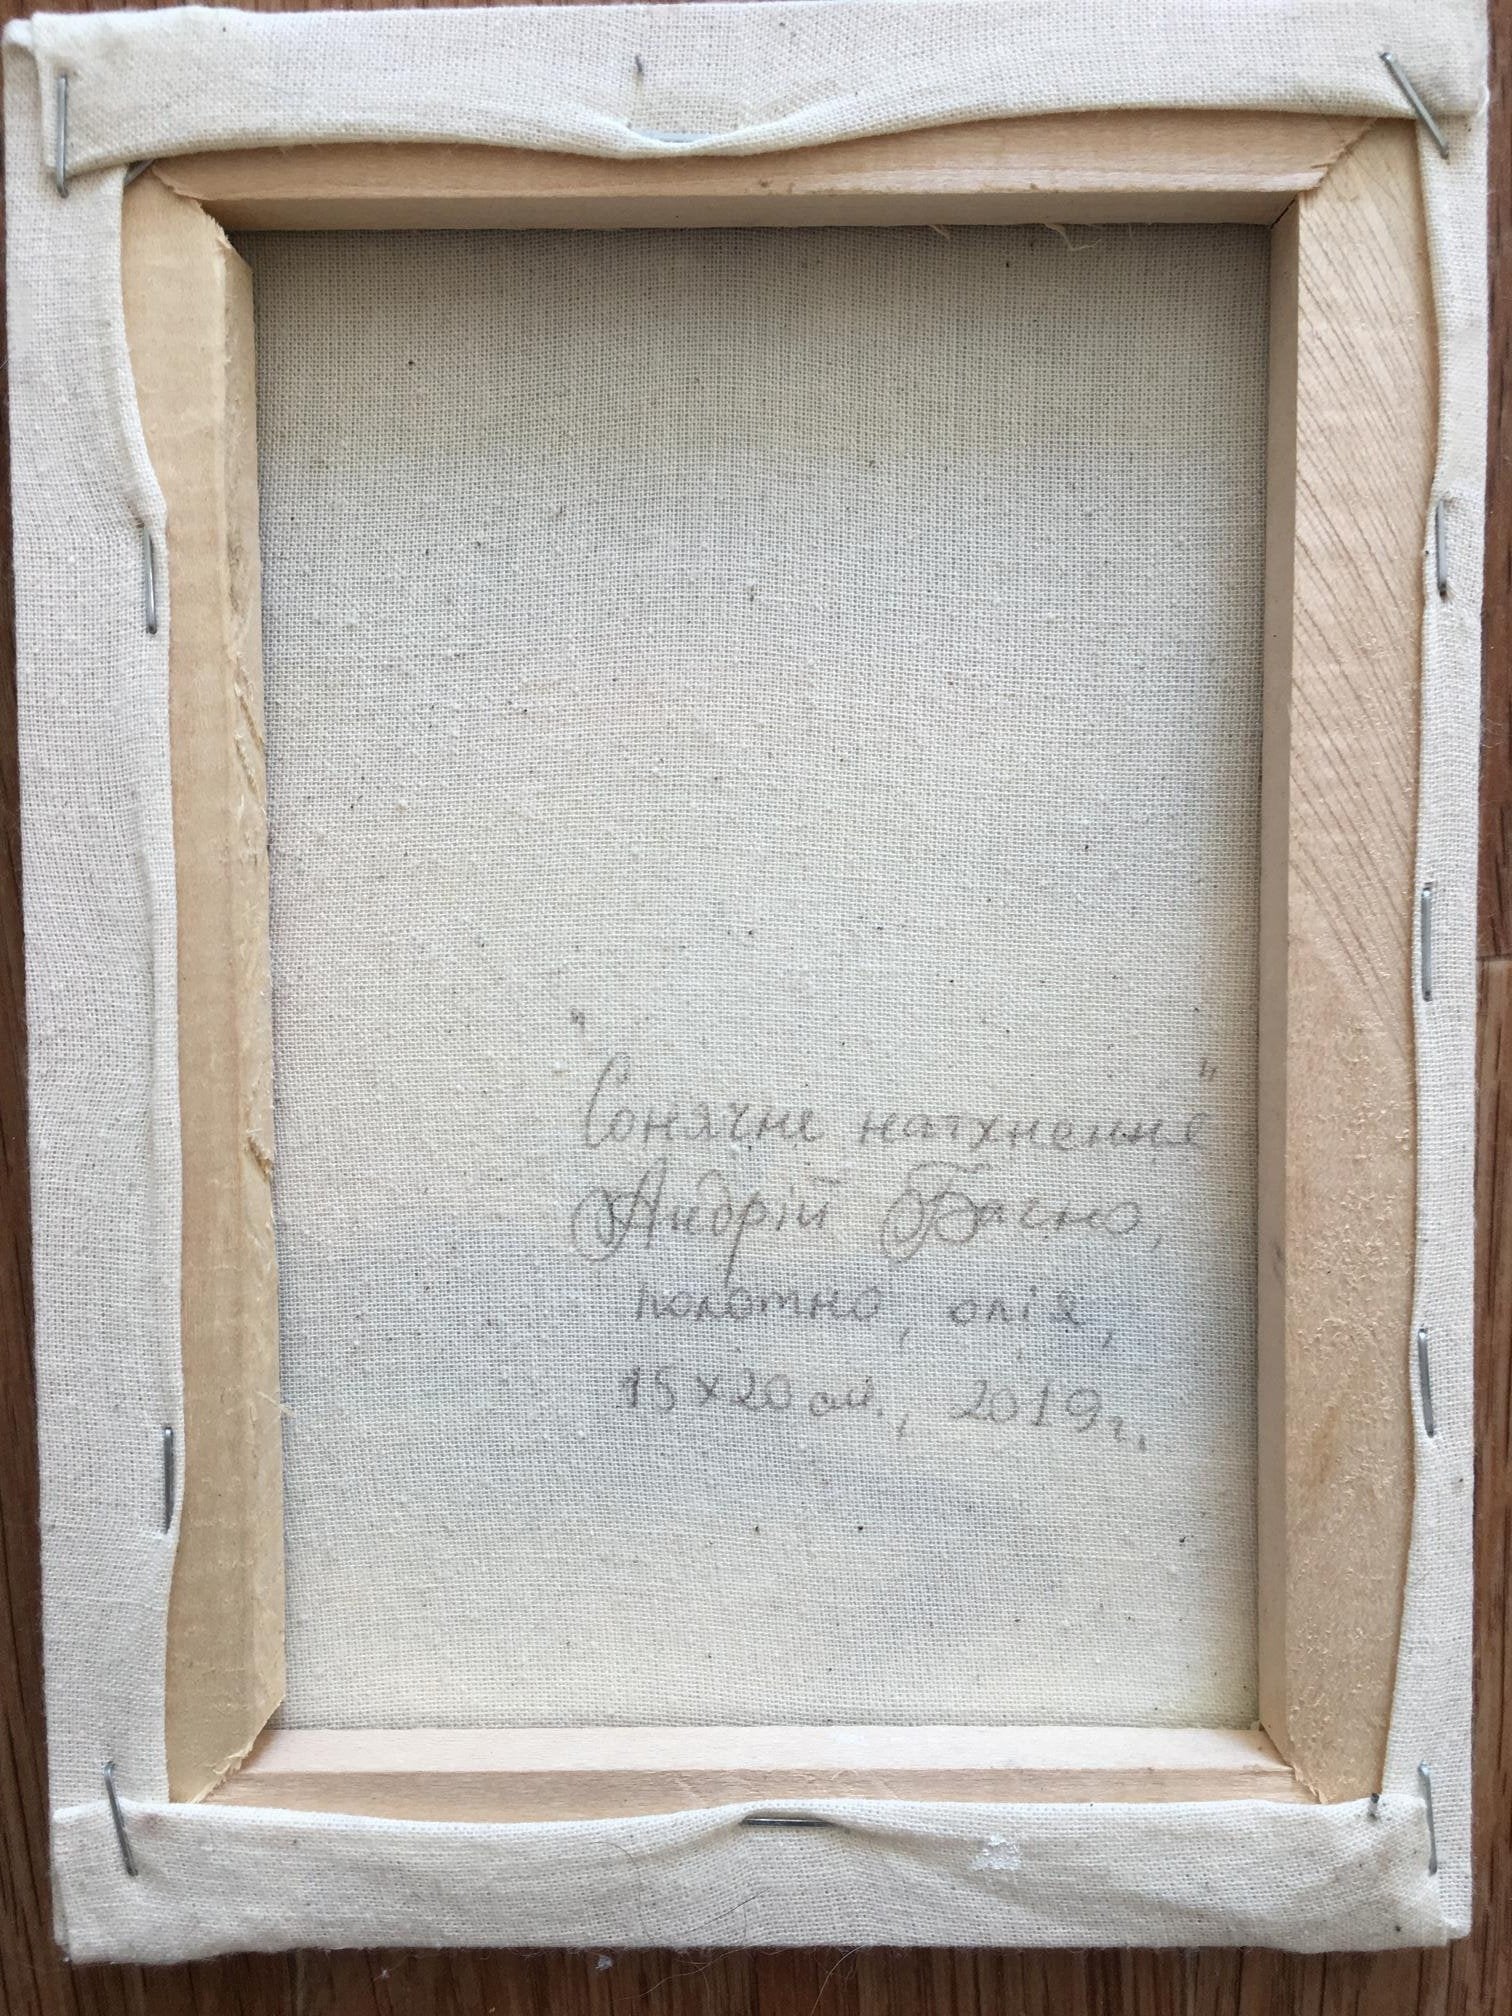 "Сонячне натхнення"
Андрій Басно,
полотно, олія,
15х20 см., 2019 г.